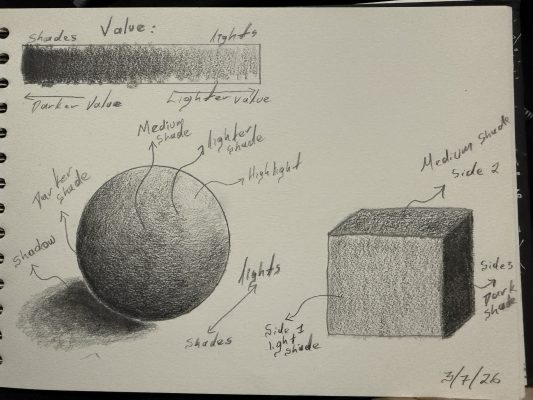 Value:
Shades
lights
Darker Value
Lighter value
Medium
shade
lighter
shade
Highlight
Darker
shade
shadow
lights
Shades
Medium shade
Side 2
Side 1
light
shade
Side 3
Dark
Shade
3/7/26